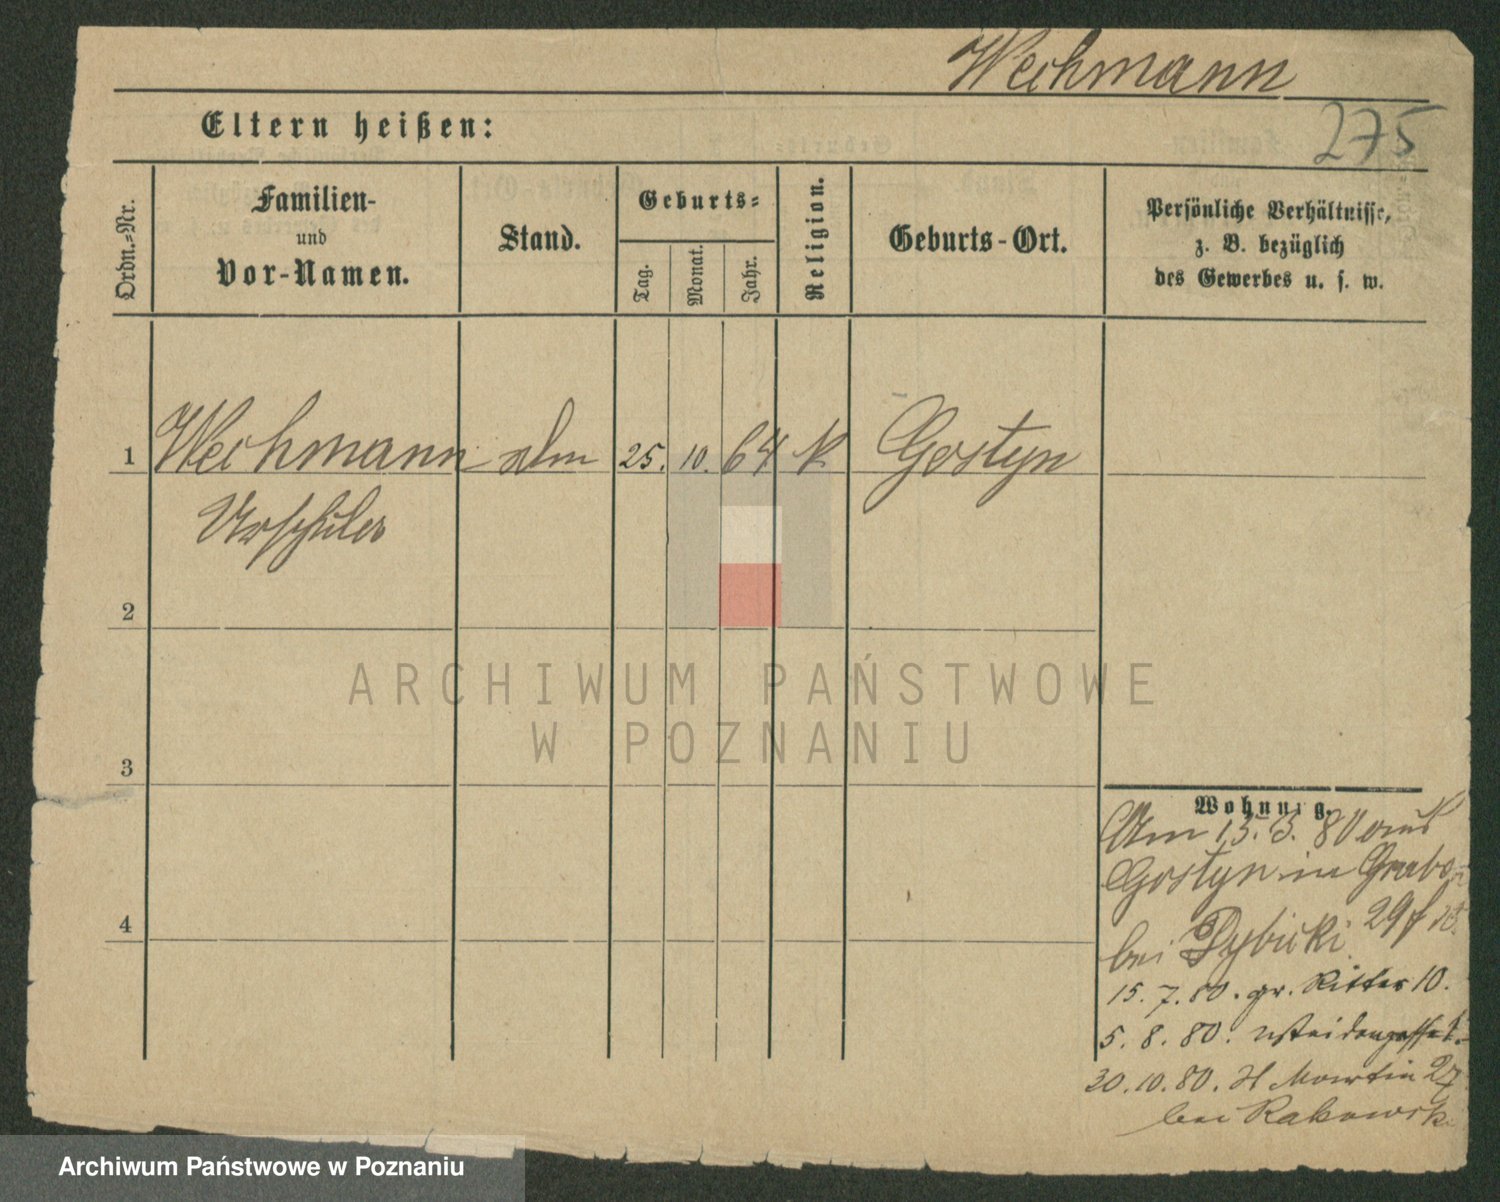 Wechmann
275
Eltern heißen:
Ordn.-Nr.
Familien-
und
Vor-Namen.
Stand.
Geburts-
Tag.
Monat.
Jahr.
Religion.
Geburts-Ort.
Persönliche Verhältnisse,
z. B. bezüglich
des Gewerbes u. s. w.
1 Wechmann 25. 10. 64 K Gostyn
2
3
4
ARCHIWUM PAŃSTWOWE
W POZNANIU
Wohnung.
Am 15. 3. 80 aus
Gostyn in
bei Dybicki
15. 7. 80. gr. Ritter 10.
5. 8. 80.
30. 10. 80. St Martin 27
bei Rakowski
Archiwum Państwowe w Poznaniu